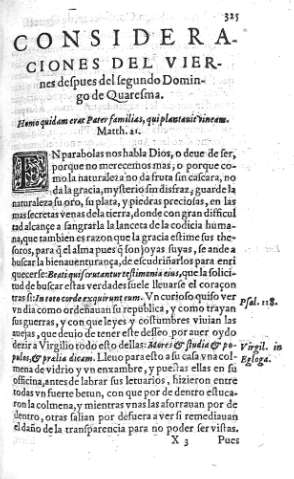 325
CONSIDERA-
CIONES DEL VIER-
nes despues del segundo Domin-
go de Quaresma.
Homo quidam erat Pater familias, qui plantauit vineam.
Matth. 21.
EN parabolas nos habla Dios, o deue de ser,
porque no merecemos mas, o porque co-
mo la naturaleza no da fruta sin cascara, no
da la gracia, mysterio sin disfraz; guarde la
naturaleza su oro, su plata, y piedras preciosas, en las
mas secretas venas de la tierra, donde con gran dificul
tad alcançe a sangrarla la lanceta de la codicia huma-
na, que tambien es razon que la gracia estime sus the-
soros, para q̃ el alma pues q̃ son joyas suyas, se ande a
buscar la bienauenturança, de escudriñarlos para enri
quecerse: Beati qui scrutantur testimonia eius, que la solicitu
de buscar estas verdades suele lleuarse el coraçon
tras si: In toto corde exquirunt eum. Vn curioso quiso ver
Psal. 118.
vn dia como ordenauan su republica, y como trayan
sus guerras, y con que leyes y costumbres viuian las
auejas, que deuio de tener este desseo por auer oydo
dezir a Virgilio todo esto dellas: Mores & studia & po-
Virgil. in
pulos, & prælia dicam. Lleuo para esto a su casa vna col-
Egloga.
mena de vidrio y vn enxambre, y puestas ellas en su
officina, antes de labrar sus letuarios, hizieron entre
todas vn fuerte betun, con que por de dentro estuca-
ron la colmena, y mientras vnas las aforrauan por de
dentro, otras salian por defuera a ver si remediauan
el daño de la transparencia para no poder ser vistas.
X 3
Pues